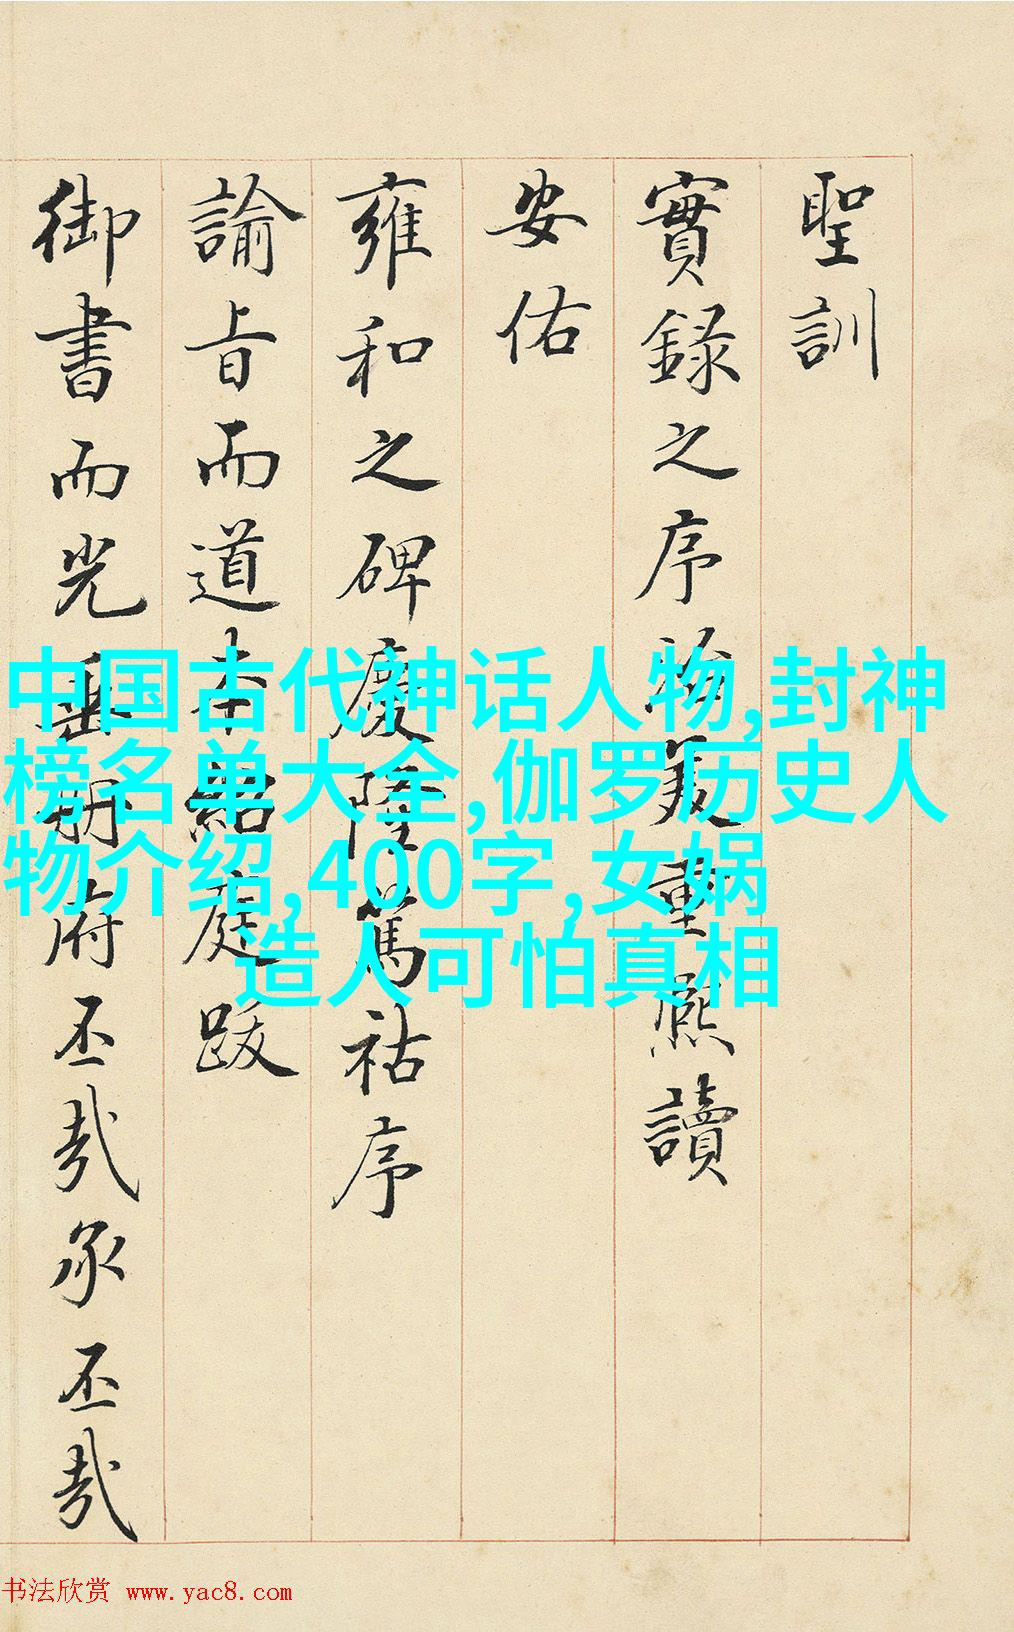 聖訓
實錄之序瀚美重熙讀
安佑
雍和之碑慶隆篤祜序
諭旨而道本紹庭跋
御書而光垂册府丕哉承丕哉
中国古代神话人物,封神
榜名单大全,伽罗历史人
物介绍,400字,女娲
造人可怕真相
书法欣赏 www.yac8.com